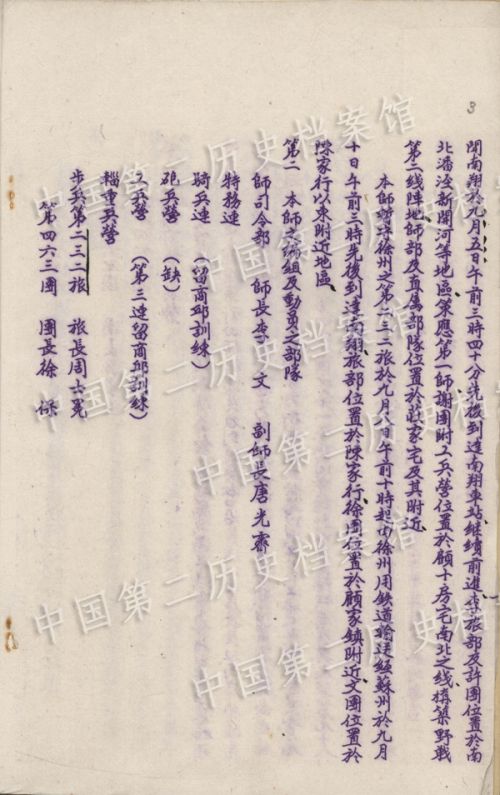 3
開南翔於九月五日午前三時四十分先後到達南翔車站繼續前進李旅部及許團位置於南
北潘涇新開河等地區策應第一師謝團附工兵營位置於顧十房宅南北之線構築野戰
第二線陣地師部及直屬部隊位置於莊家宅及其附近
本師暫駐徐州之第二三二旅於九月八日午前十時起由徐州用鉄道輸送經蘇州於九月
十日午前三時先後到達南翔旅部位置於陳家行徐團位置於顧家鎮附近文團位置於
陳家行以東附近地區
第二 本師之編組及動員之部隊
師司令部 師長李文 副師長唐光霽
特務連
騎兵連 （留商邱訓練）
砲兵營 （缺）
工兵營 （第三連留商邱訓練）
輜重兵營
步兵第二三二旅 旅長周士冕
第四六三團 團長徐保
中国第二历史档案馆